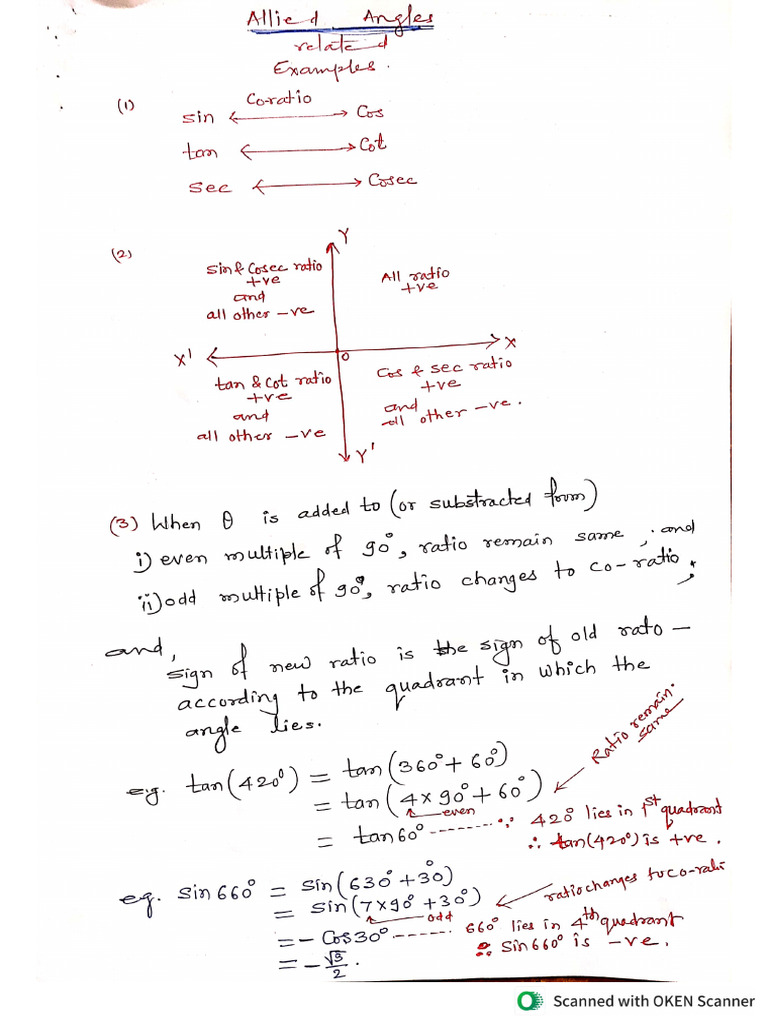 Allied Angles
related
Examples.
(1)
Co-ratio
sin ⟷ Cos
tan ⟷ Cot
sec ⟷ Cosec
(2)
Y
sin & Cosec ratio
+ve
and
all other -ve
All ratio
+ve
X' O X
tan & Cot ratio
+ve
and
all other -ve
Cos & sec ratio
+ve
and
all other -ve.
Y'
(3) When θ is added to (or substracted from)
i) even multiple of 90°, ratio remain same, and
ii) odd multiple of 90°, ratio changes to co-ratio;
and,
sign of new ratio is the sign of old rato -
according to the quadrant in which the
angle lies.
Ratio remain.
same
e.g. tan(420°) = tan(360° + 60°)
= tan(4 x 90° + 60°)
even
= tan60° -------- ∵ 420° lies in 1st quadrant
∴ tan(420°) is +ve.
e.g. sin 660° = sin(630° + 30°)
= sin(7 x 90° + 30°) ratio changes to co-rati
odd
= - Cos 30° ------ 660° lies in 4th quadrant
∴ sin 660° is -ve.
= - √3/2.
Scanned with OKEN Scanner